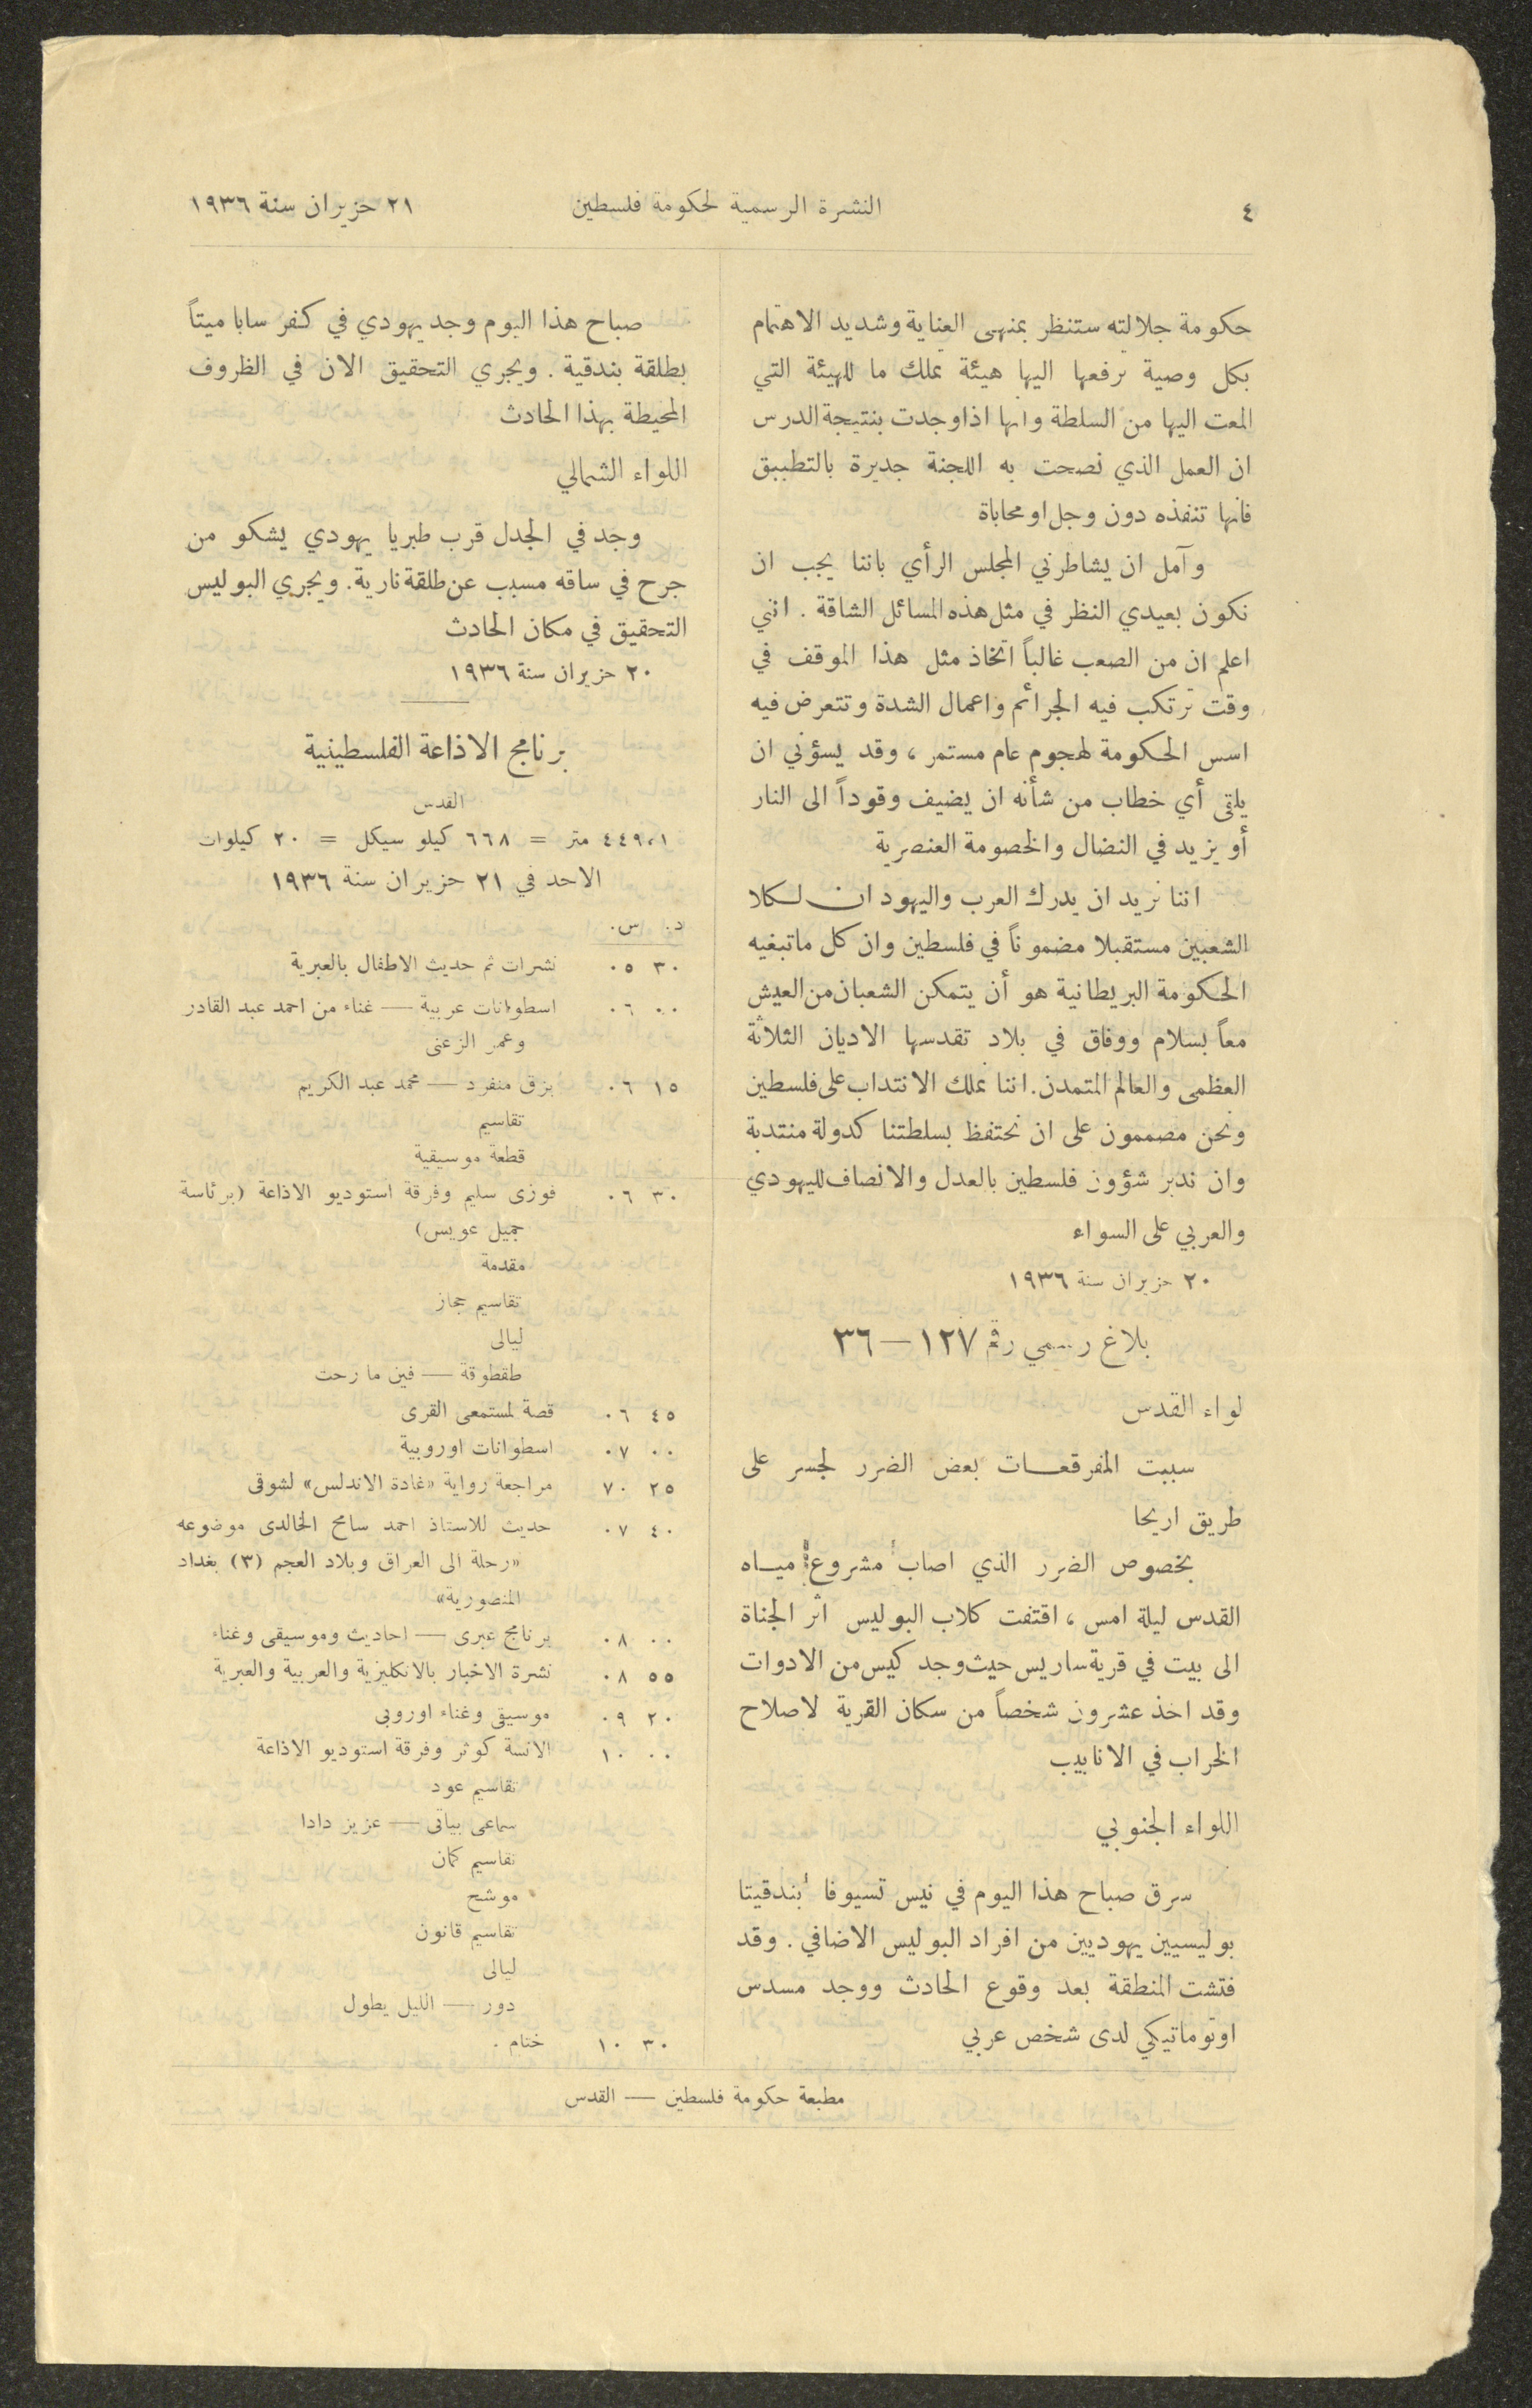 ٤
النشرة الرسمية لحكومة فلسطين
٢١ حزيران سنة ١٩٣٦
حكومة جلالته ستنظر بمنهى العناية وشديد الاهتمام
بكل وصية ترفعها اليها هيئة تملك ما للهيئة التي
المعت اليها من السلطة وانها اذا وجدت بنتيجة الدرس
ان العمل الذي نصحت به اللجنة جديرة بالتطبيق
فانها تنفذه دون وجل او محاباة
وآمل ان يشاطرني المجلس الرأي باننا يجب ان
نكون بعيدي النظر في مثل هذه المسائل الشاقة . انني
اعلم ان من الصعب غالباً اتخاذ مثل هذا الموقف في
وقت ترتكب فيه الجرائم واعمال الشدة وتتعرض فيه
اسس الحكومة لهجوم عام مستمر ، وقد يسؤني ان
يلقى أي خطاب من شأنه ان يضيف وقوداً الى النار
أو يزيد في النضال والخصومة العنصرية
اننا نريد ان يدرك العرب واليهود ان لكلا
الشعبين مستقبلا مضموناً في فلسطين وان كل ماتبغيه
الحكومة البريطانية هو أن يتمكن الشعبان من العيش
معاً بسلام ووفاق في بلاد تقدسها الاديان الثلاثة
العظمى والعالم المتمدن. اننا نملك الانتداب على فلسطين
ونحن مصممون على ان نحتفظ بسلطتنا كدولة منتدبة
وان ندبر شؤون فلسطين بالعدل والانصاف لليهودي
والعربي على السواء
٢٠ حزيران سنة ١٩٣٦
بلاغ رسمي رقم ١٢٧ — ٣٦
لواء القدس
سببت المفرقعات بعض الضرر لجسر على
طريق اريحا
بخصوص الضرر الذي اصاب مشروع مياه
القدس ليلة امس ، اقتفت كلاب البوليس اثر الجناة
الى بيت في قرية ساريس حيث وجد كيس من الادوات
وقد اخذ عشرون شخصاً من سكان القرية لاصلاح
الخراب في الانابيب
اللواء الجنوبي
سرق صباح هذا اليوم في نيس تسيوفا بندقيتا
بوليسيين يهوديين من افراد البوليس الاضافي . وقد
فتشت المنطقة بعد وقوع الحادث ووجد مسدس
اوتوماتيكي لدى شخص عربي
صباح هذا اليوم وجد يهودي في كنفر سابا ميتاً
بطلقة بندقية . ويجري التحقيق الان في الظروف
المحيطة بهذا الحادث
اللواء الشمالي
وجد في المجدل قرب طبريا يهودي يشكو من
جرح في ساقه مسبب عن طلقة نارية. ويجري البوليس
التحقيق في مكان الحادث
٢٠ حزيران سنة ١٩٣٦
برنامج الاذاعة الفلسطينية
القدس
٤٤٩،١ متر = ٦٦٨ كيلو سيكل = ٢٠ كيلوات
الاحد في ٢١ حزيران سنة ١٩٣٦
د. س.
٣٠ ٠٥ نشرات ثم حديث الاطفال بالعبرية
٠٠ ٠٦ اسطوانات عربية — غناء من احمد عبد القادر
وعمر الزعنى
١٥ ٠٦ بزق منفرد — محمد عبد الكريم
تقاسيم
قطعة موسيقية
٣٠ ٠٦ فوزى سليم وفرقة استوديو الاذاعة (برئاسة
جميل عويس)
مقدمة
تقاسيم حجاز
ليالى
طقطوقة — فين ما رحت
٤٥ ٠٦ قصة لمستمعى القرى
٠٠ ٠٧ اسطوانات اوروبية
٢٥ ٧٠ مراجعة رواية «غادة الاندلس» لشوقى
٤٠ ٠٧ حديث للاستاذ احمد سامح الخالدى موضوعه
«رحلة الى العراق وبلاد العجم (٣) بغداد
المنصورية»
٠٠ ٠٨ برنامج عبرى — احاديث وموسيقى وغناء
٥٥ ٠٨ نشرة الاخبار بالانكليزية والعربية والعبرية
٢٠ ٠٩ موسيقى وغناء اوروبى
٠٠ ١٠ الانسة كوثر وفرقة استوديو الاذاعة
تقاسيم عود
سماعى بياتى — عزيز دادا
تقاسيم كمان
موشح
تقاسيم قانون
ليالى
دور — الليل يطول
٣٠ ١٠ ختام .
مطبعة حكومة فلسطين — القدس